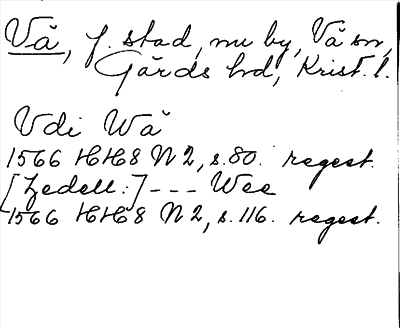 Vä, f. stad, nu by, Vä sn,
Gärds hd, Krist. l.
Vdi Wä
1566 HH8 N 2, s. 80. regest.
[Zedell:] --- Wee
1566 HH8 N 2, s. 116. regest.